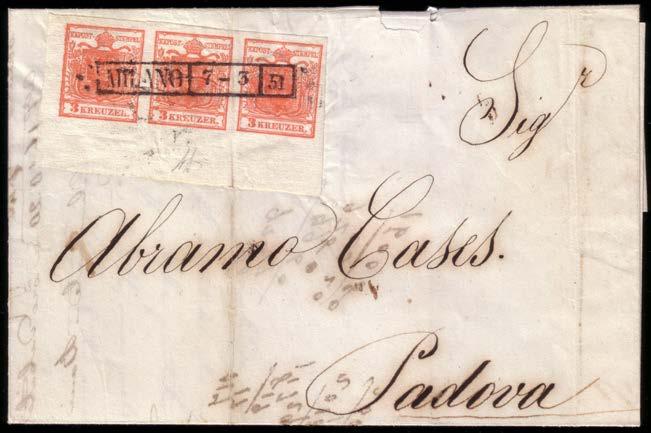 KKPOST-STEMPEL KKPOST-STEMPEL KKPOST-STEMPEL
MILANO 7-3 51
3 KREUZER. 3 KREUZER. 3 KREUZER.
Sigr
Abramo Cases.
Padova